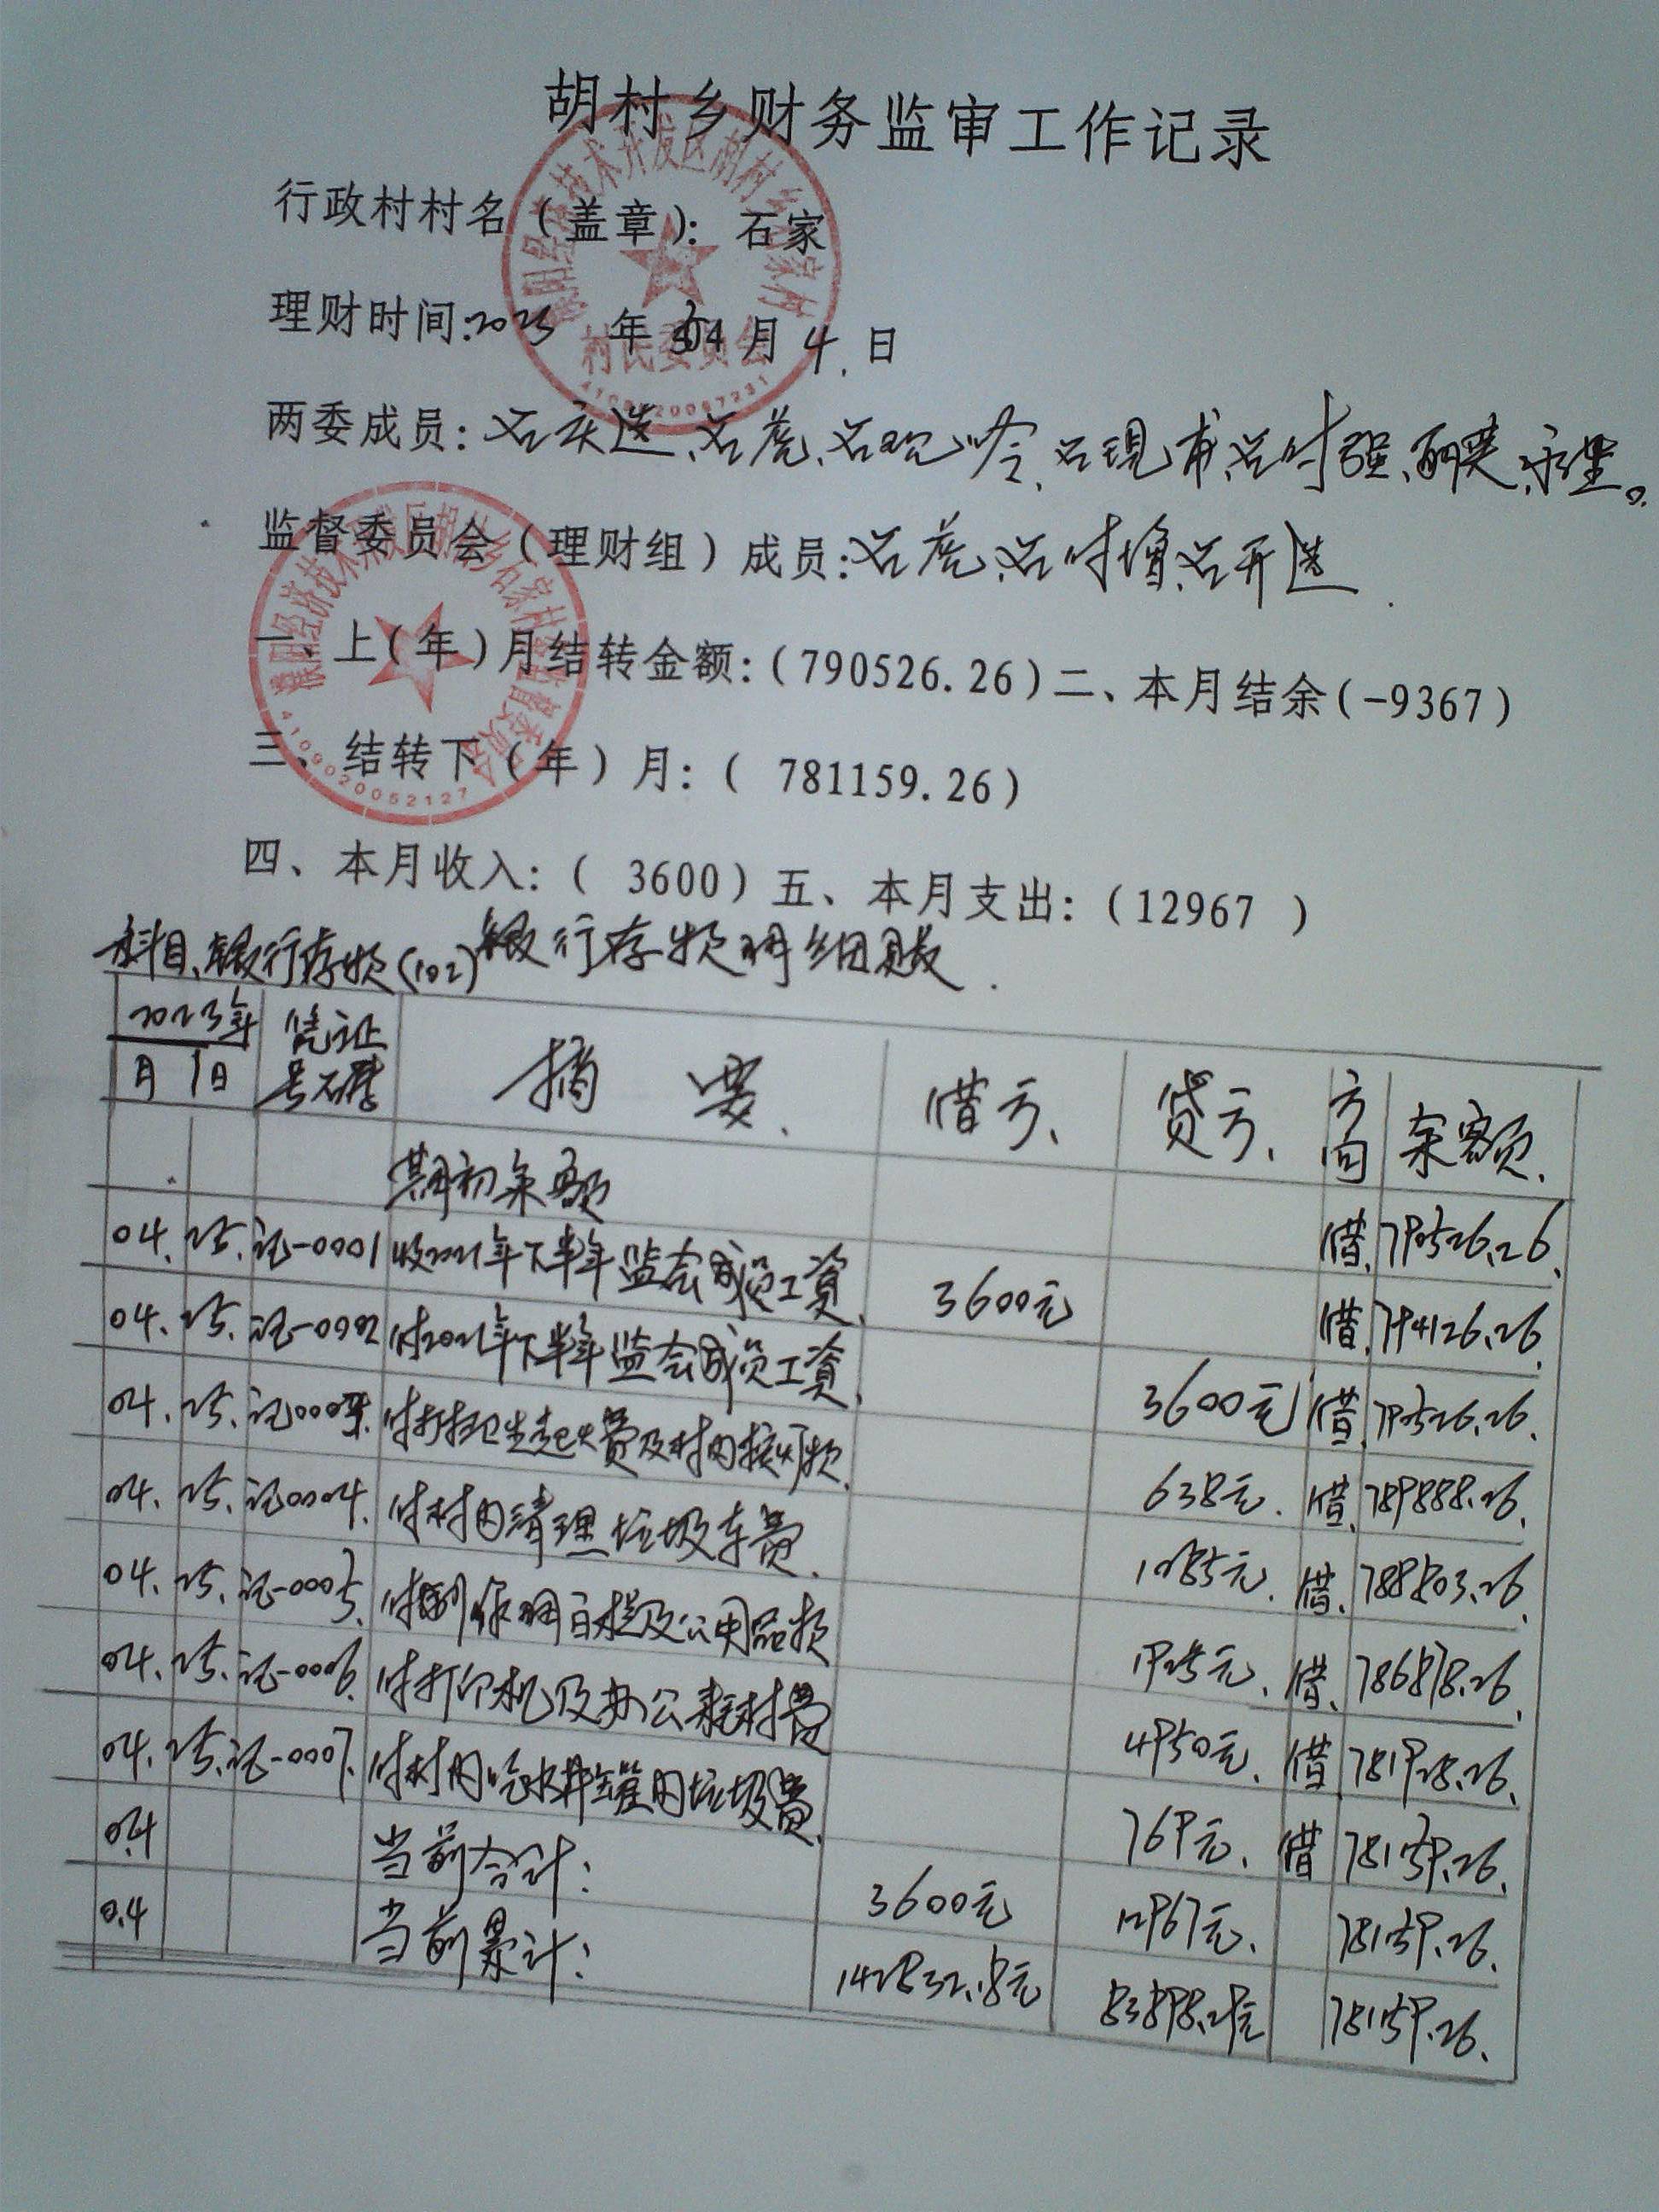 胡村乡财务监审工作记录
行政村村名（盖章）：石家
理财时间:2023 年 04 月 4.日
两委成员：石庆选、石虎、石现岭、石现甫、石付强、
监督委员会（理财组）成员:石虎、石付增、石开选.
一、上(年)月结转金额:(790526.26)二、本月结余(-9367)
三、结转下（年）月:( 781159.26)
四、本月收入:( 3600)五、本月支出:(12967 )
科目、银行存款(102)银行存款明细账.
2023年 凭证 摘 要、 借方、 贷方、 方向 余额、
月 日 号码
期初余额 借、790526.26、
04. 25. 记-0001 收2021年下半年监会成员工资、 3600元 借、794126.26、
04. 25. 记-0002 付2021年下半年监会成员工资、 3600元 借、790526.26.
04. 25. 记0003. 付打扫卫生费及村内接灯款、 638元. 借、789888.26、
04. 25. 记0004. 付村内清理垃圾车费、 1085元. 借、788803.26、
04. 25. 记-0005、 付制作明白栏及公用品款 1925元、 借、786878.26、
04. 25. 记-0006. 付打印机及办公耗材费 4950元、 借 781928.26、
04. 25. 记-0007. 付村内吃水井罐内垃圾费、 769元、 借 781159.26、
04 当前合计: 3600元 12967元、 781159.26、
04 当前累计: 142832.18元 83898.29元 781159.26、
村民委员会
4109020052127